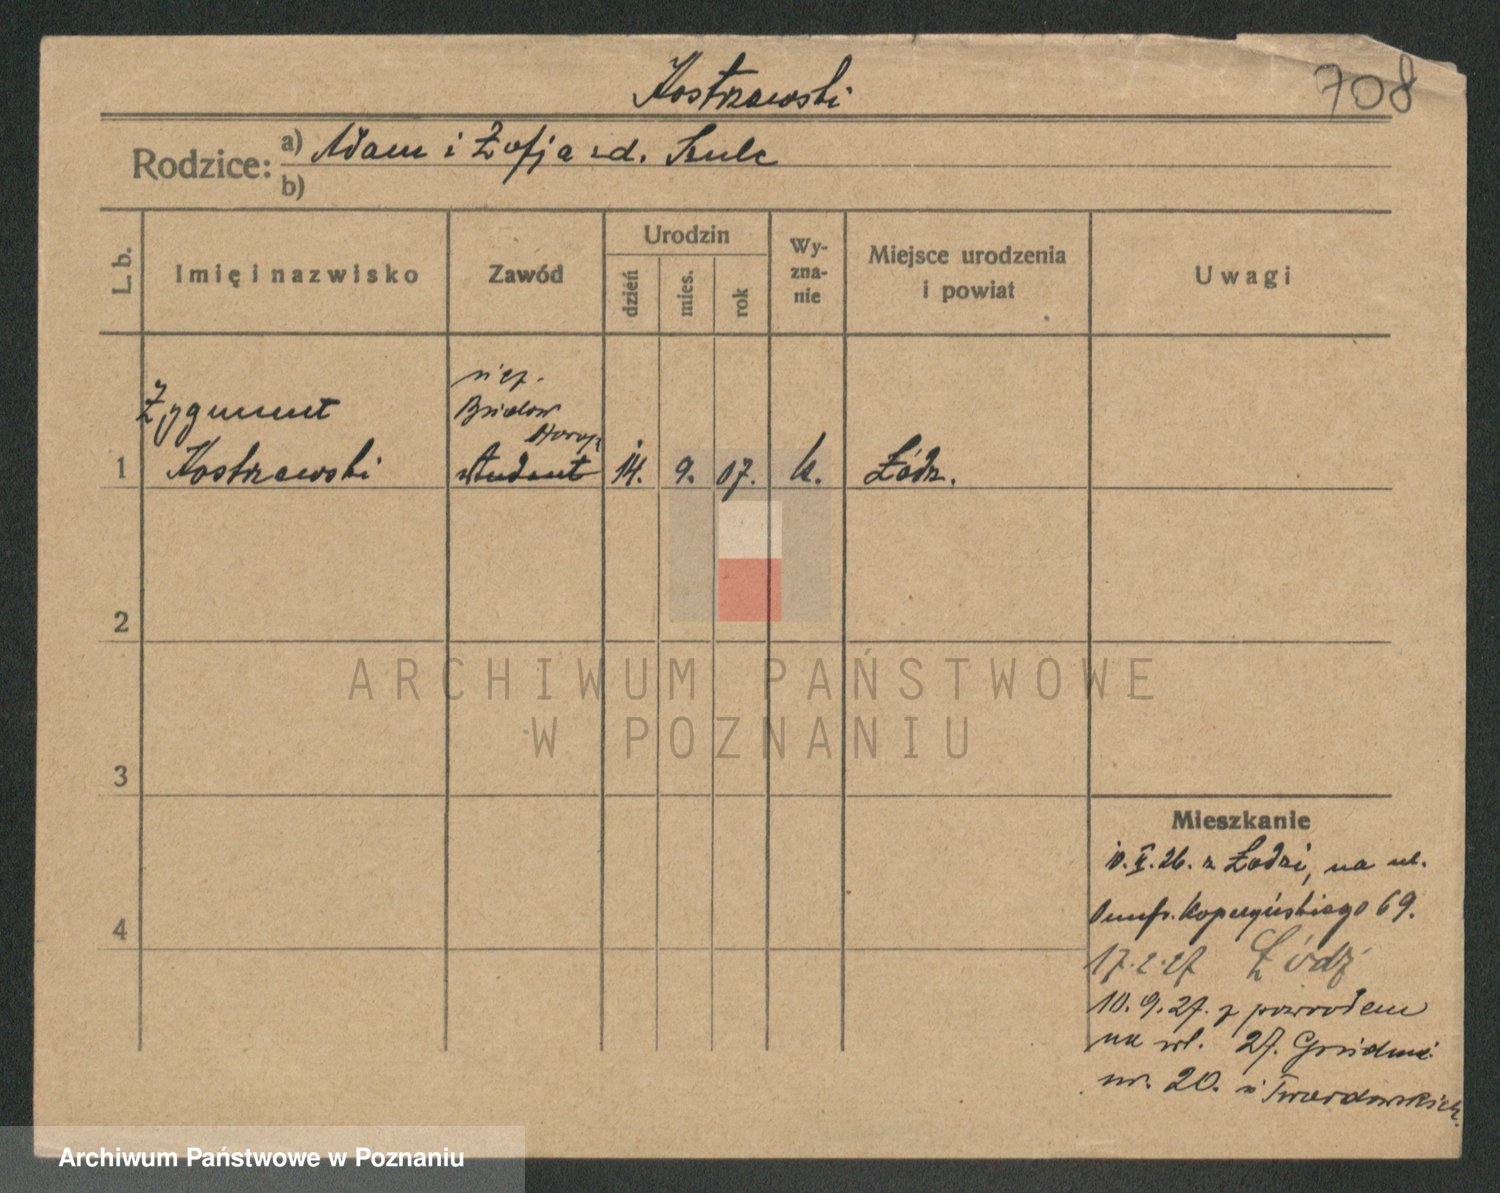 Kostrzewski
708
Rodzice:
a) Adam i Zofja zd. Szulc
b)
L. b.
Imię i nazwisko
Zawód
Urodzin
dzień
mies.
rok
Wy-
zna-
nie
Miejsce urodzenia
i powiat
Uwagi
Zygmunt
1 Kostrzewski student 14. 9. 07. k. Łódź.
2
3
4
ARCHIWUM PAŃSTWOWE
W POZNANIU
Mieszkanie
z Łodzi, na ul.
69.
17.2.27 Łódź
10.9.27. z powrotem
na ul. 27. Grudnia
nr. 20. u Twardowskich.
Archiwum Państwowe w Poznaniu